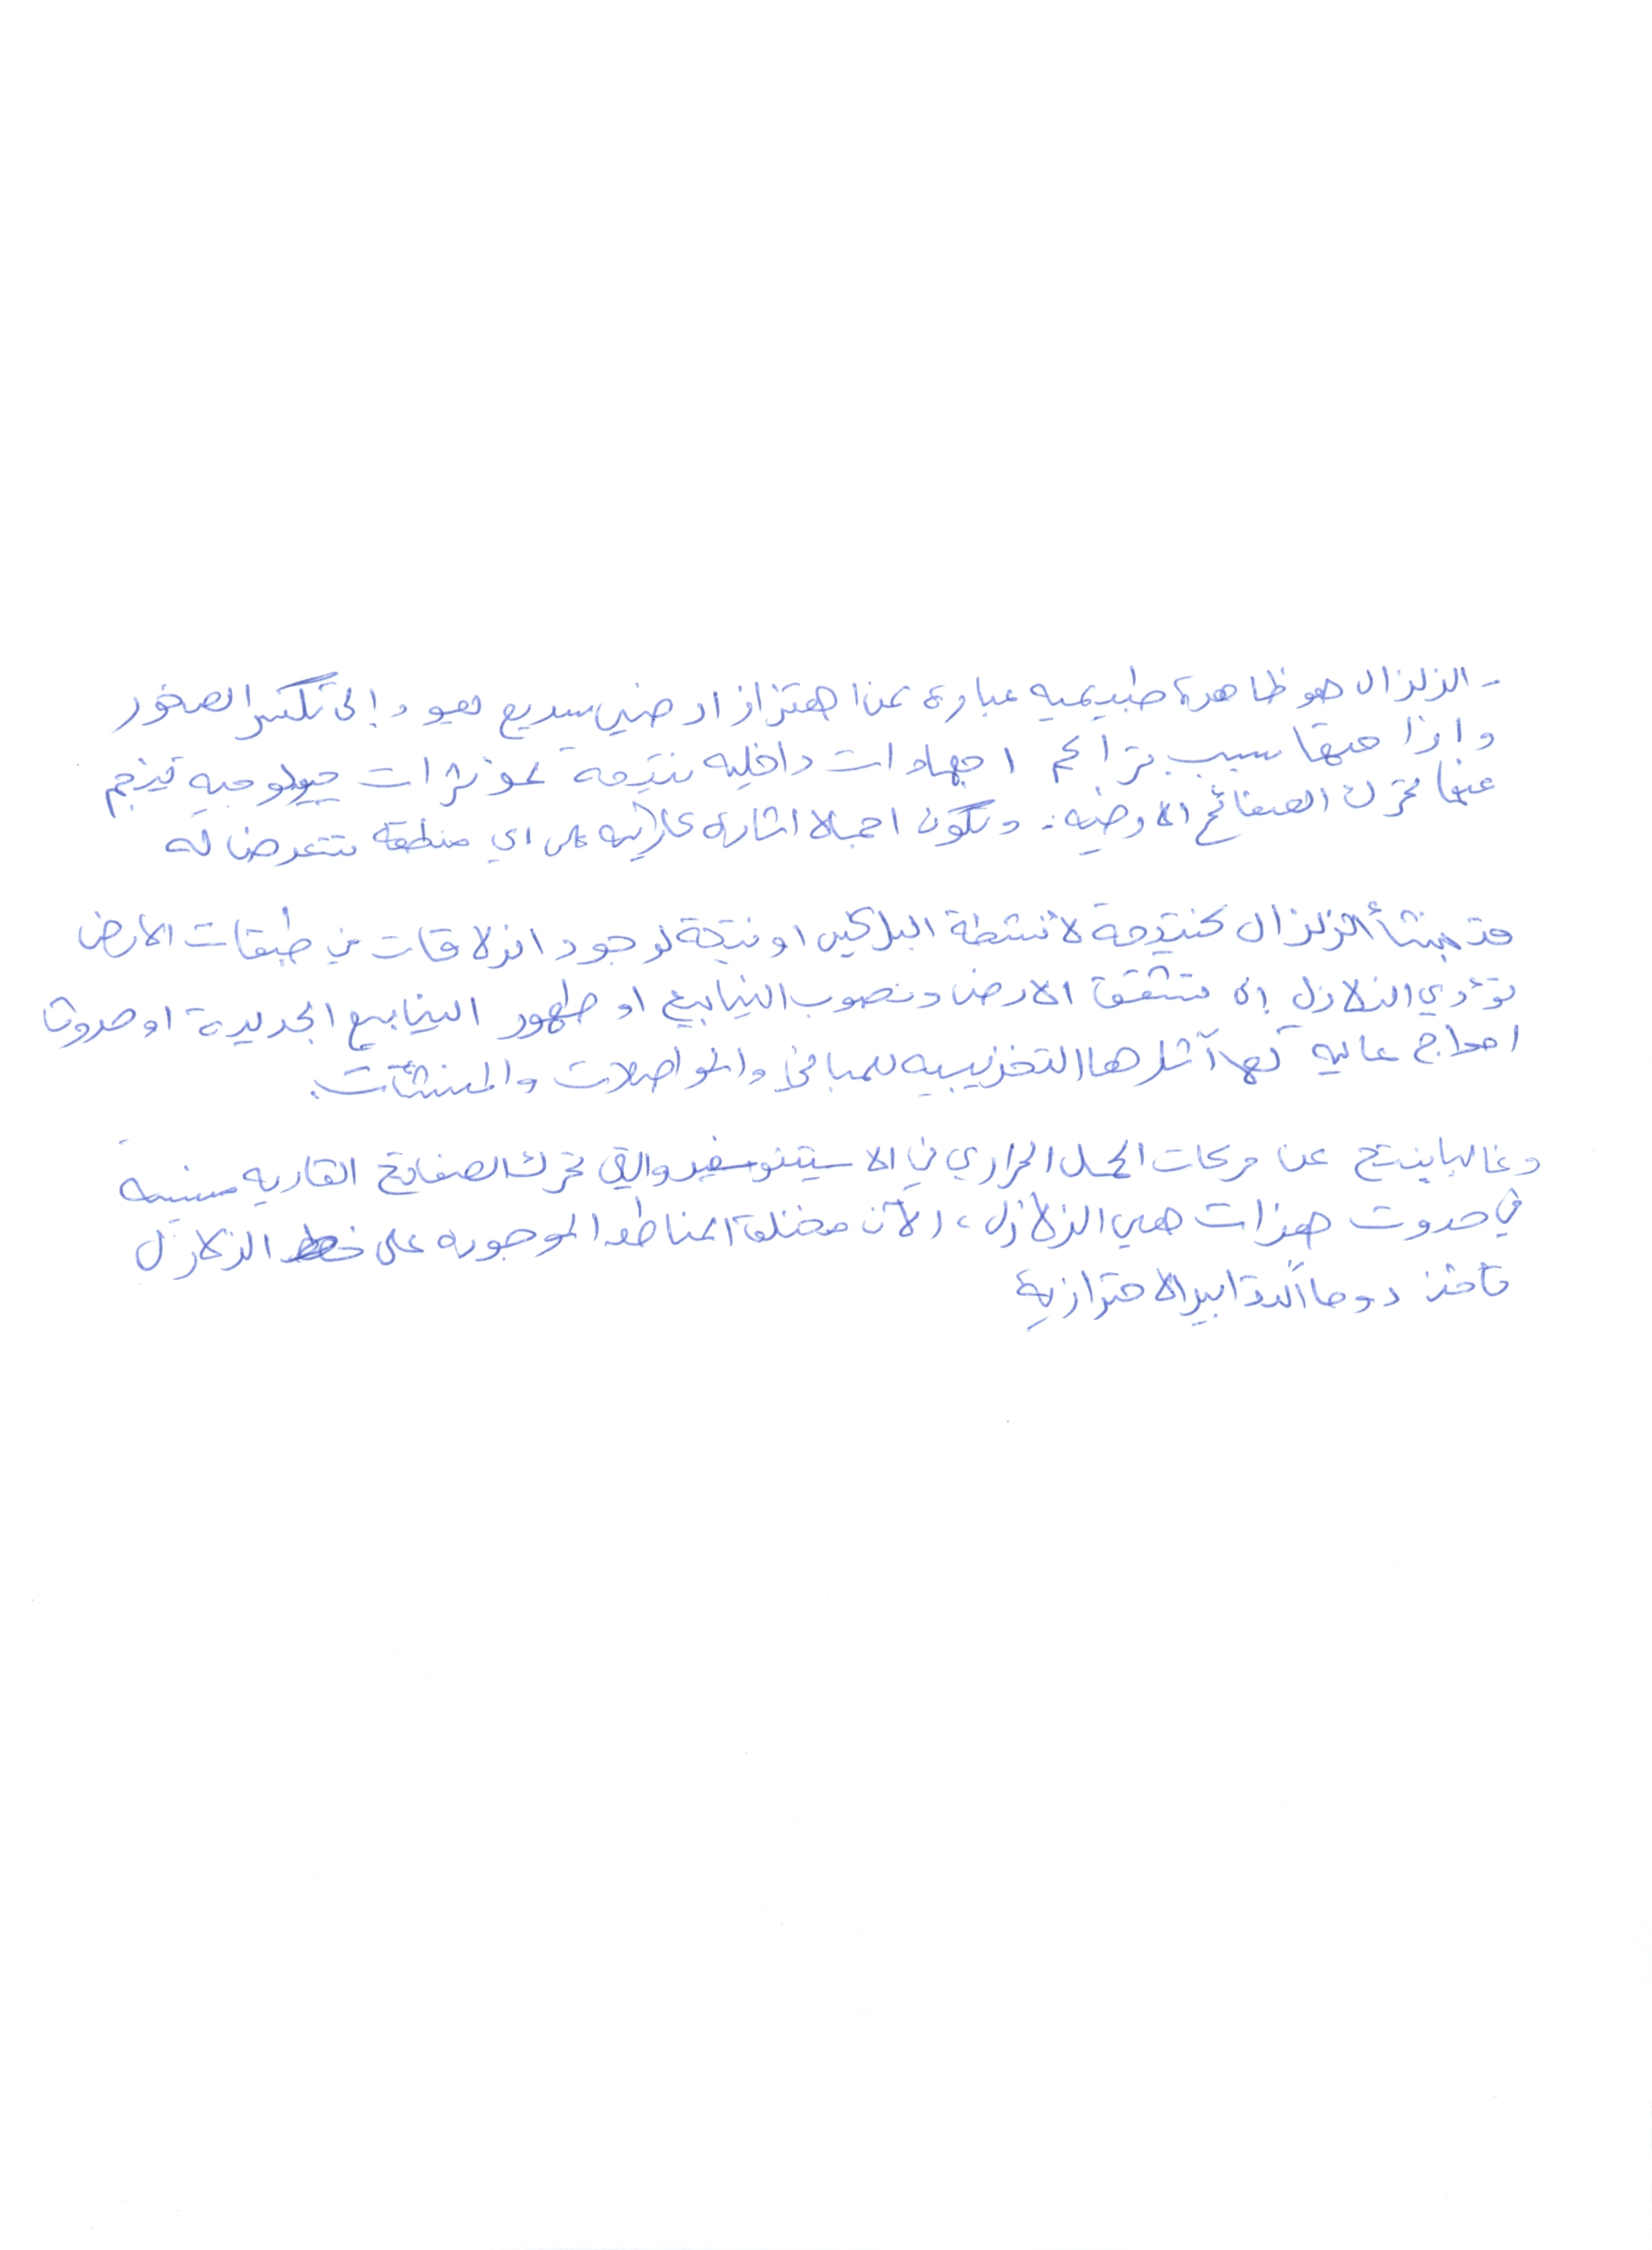 - الزلزال هو ظاهرة طبيعيه عبارة عن اهتزاز ارضي سريع يعود إلى تكسر الصخور
واذا حتها سبب تراكم اجهادات داخليه نتيجة لمؤثرات جيولوجيه ينجم
عنها تحرك الصفائح الارضيه. وتكون اجمالا اثاره كارثيه على اي منطقة تتعرض له
قد ينشأ الزلزال كنتيجة لأنشطة البراكين او نتيجة لوجود انزلاقات في طبقات الارض
تؤدي الزلازل إلى تشقق الارض ونضوب الينابيع او ظهور الينابيع الجديدة او حدوث
امواج عاليه لها آثارها التخريبيه للمباني والمواصلات والمنشآت.
وغالبا ينتج عن حركات الحمل الحراري في الاسيتنوسفير والتي تحرك الصفائح القاريه مسببه
في حدوث هزات هي الزلازل، الآن مختلف المناطق الموجوده على خط الزلازل
تأخذ دوماً التدابير الاحترازية